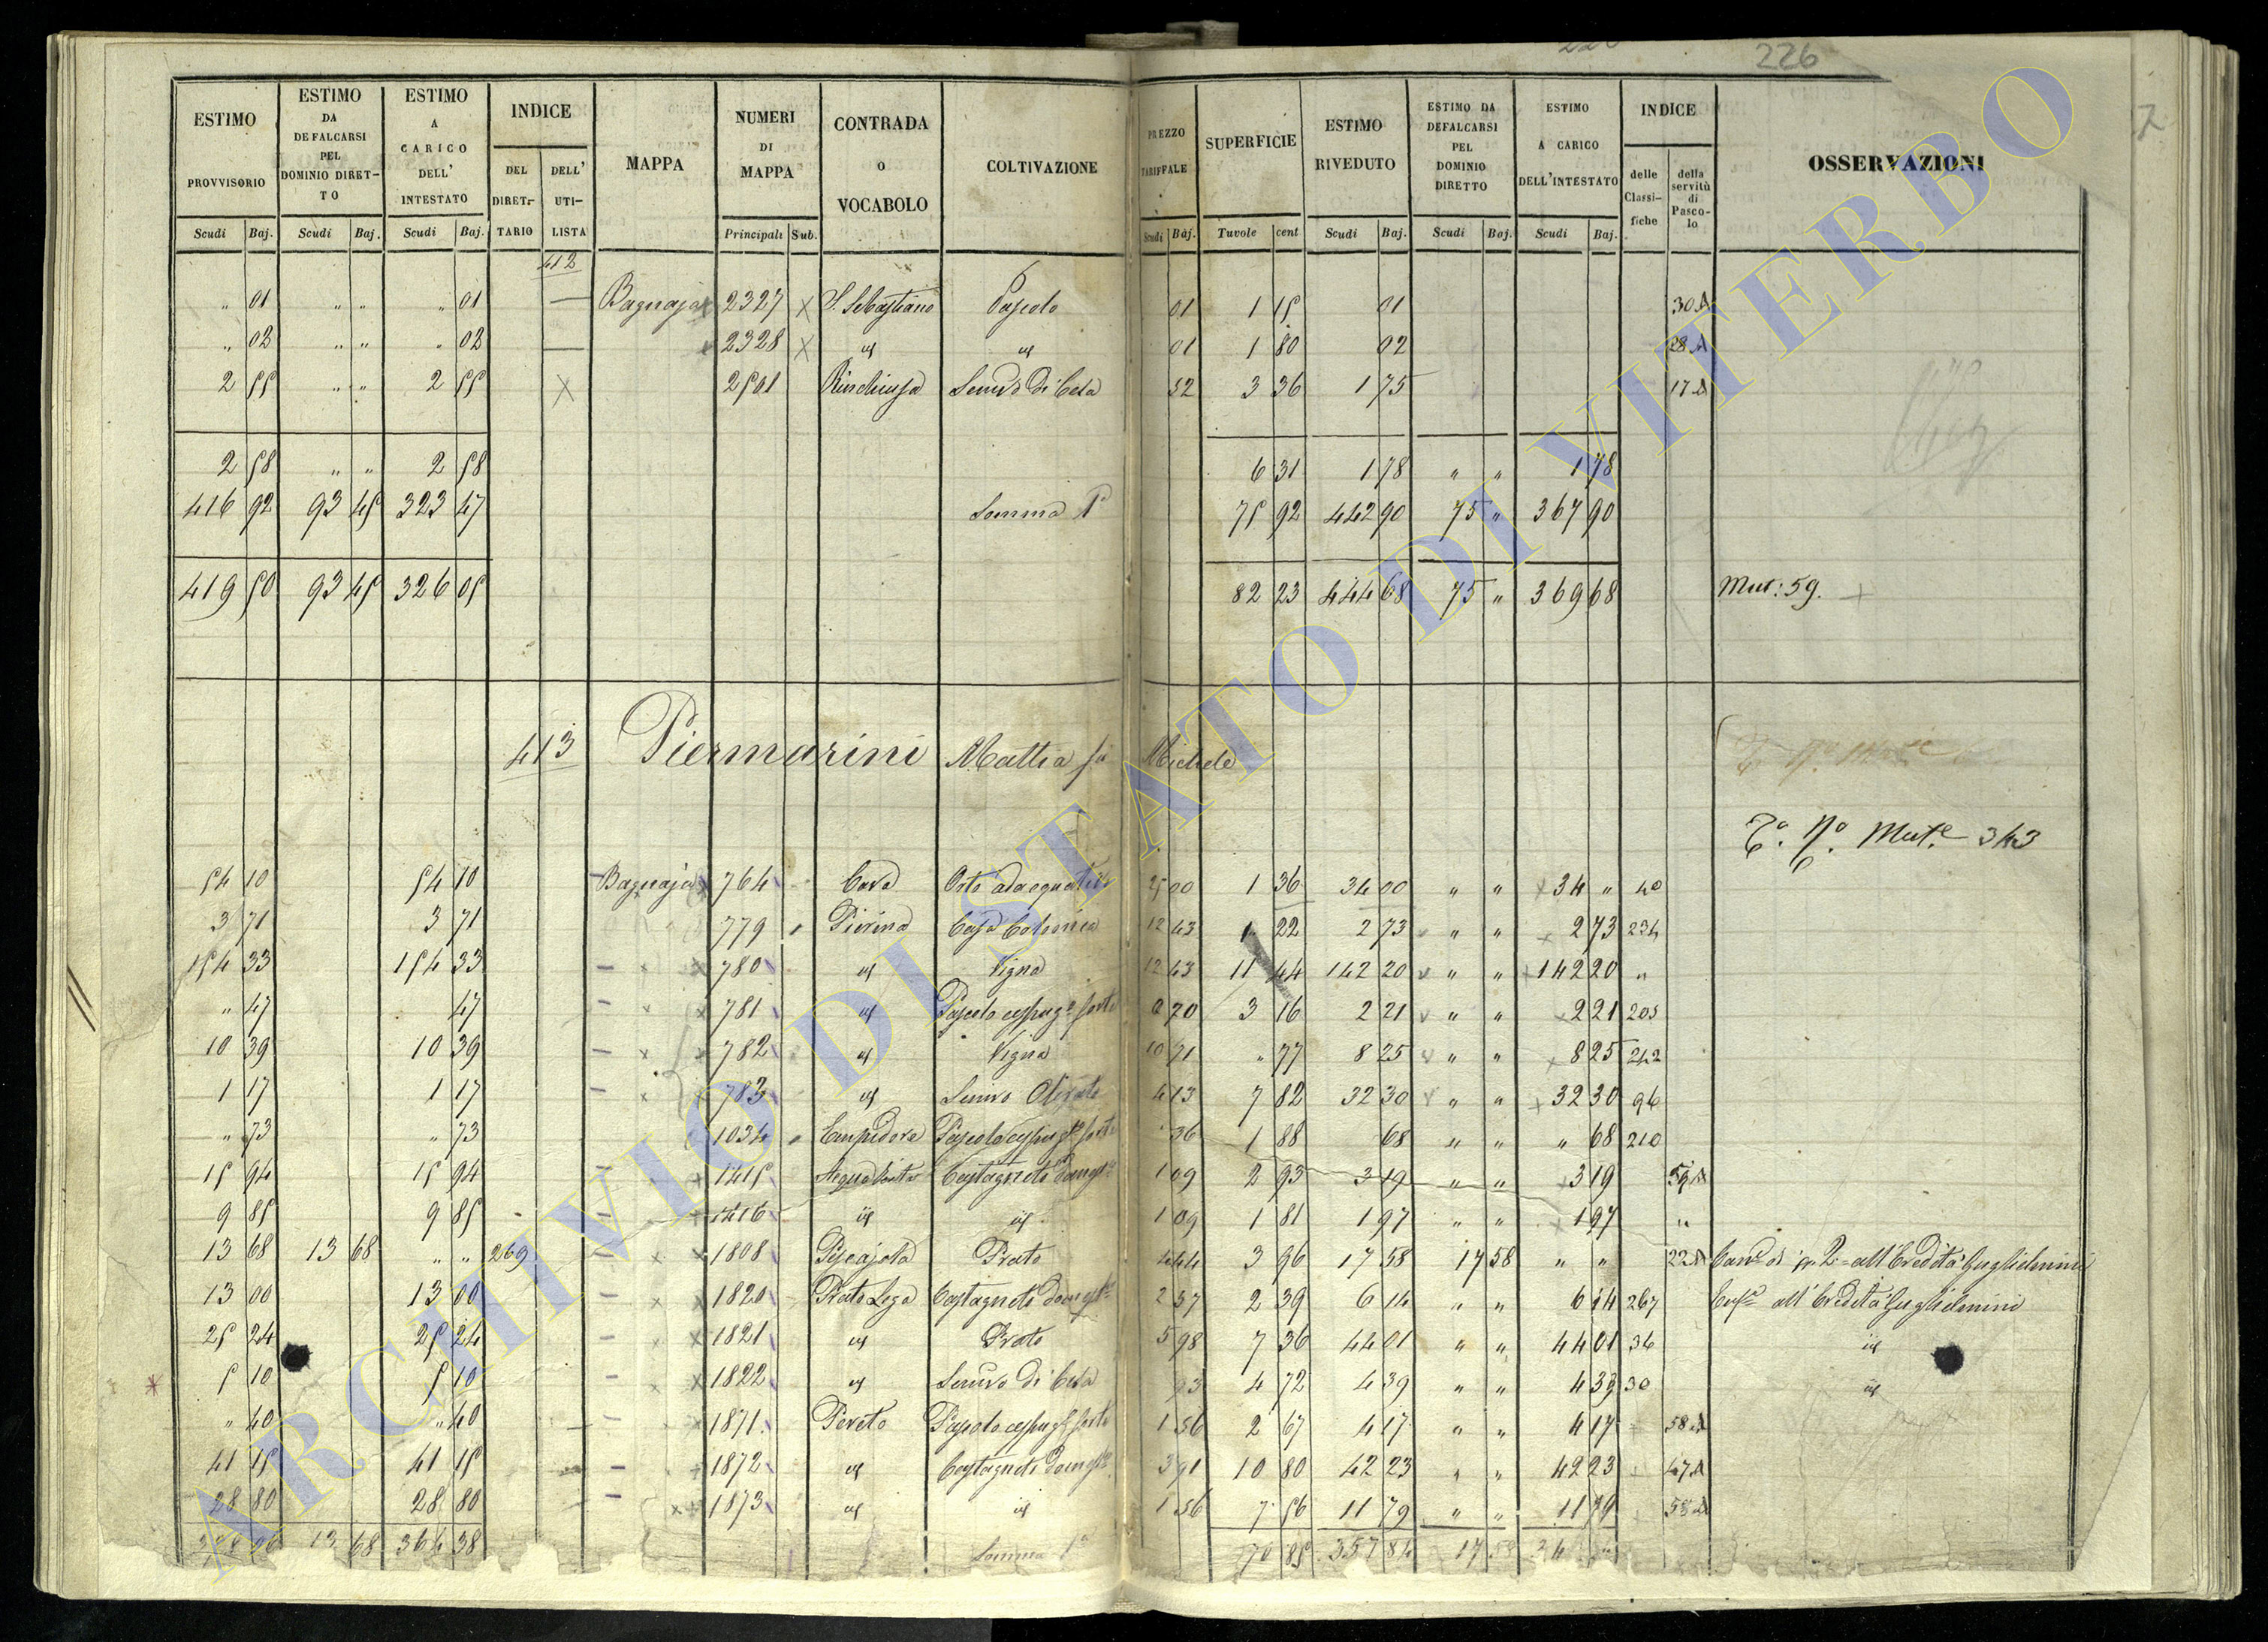 226
ESTIMO PROVVISORIO | ESTIMO DA DEFALCARSI PEL DOMINIO DIRET-TO | ESTIMO A CARICO DELL' INTESTATO | INDICE DEL DIRET-TARIO | DELL' UTI-LISTA | MAPPA | NUMERI DI MAPPA | CONTRADA O VOCABOLO | COLTIVAZIONE | PREZZO TARIFFALE | SUPERFICIE | ESTIMO RIVEDUTO | ESTIMO DA DEFALCARSI PEL DOMINIO DIRETTO | ESTIMO A CARICO DELL'INTESTATO | INDICE delle Classi-fiche | della servitù di Pasco-lo | OSSERVAZIONI
Scudi Baj. Scudi Baj. Scudi Baj. Principali Sub. Scudi Baj. Tuvole cent Scudi Baj. Scudi Baj. Scudi Baj.
412
" 01 " " " 01 — Bagnaja 2327 X S. Sebastiano Pascolo 01 1 15 01 30 A
" 02 " " " 02 — 2328 X id id 01 1 80 02 28 A
2 55 " " 2 55 X 2501 Rinchiusa Semvo di Cesa 52 3 36 1 75 17 A
2 58 " " 2 58 6 31 1 78 " " 1 78
416 92 93 45 323 47 Somma Pª 75 92 442 90 75 " 367 90
419 50 93 45 326 05 82 23 444 68 75 " 369 68 Mut: 59. +
413 Piermarini Mattia fu Michele
Tº. Nº. Mute. 343
54 10 54 10 Bagnaja 764 Cava Orto adacquativo 25 00 1 36 34 00 " " 34 " 40
3 71 3 71 779 Pierina Casa Colonica 12 43 22 2 73 " " 2 73 234
154 33 154 33 780 id Vigna 12 43 11 44 142 20 " " 142 20 "
" 47 47 781 id Pascolo cespugo forte 70 3 16 2 21 " " 2 21 205
10 39 10 39 782 id Vigna 10 71 " 77 8 25 " " 8 25 242
1 17 1 17 783 id Semivo Olivato 4 13 7 82 32 30 " " 32 30 96
" 73 " 73 1034 Pascolo cespugo forte 36 1 88 68 " " " 68 210
15 94 15 94 1415 Castagneto domestº 1 09 2 93 3 19 " " 3 19 59 A
9 85 9 85 1416 id id 1 09 1 81 1 97 " " 1 97 "
13 68 13 68 " " 269 1808 Pescajola Prato 4 44 3 96 17 58 17 58 " " 22 A all'Eredità Guglielmini
13 00 13 00 1820 Prato Lega Castagneto domestº 2 57 2 39 6 14 " " 6 14 267 all'Eredità Guglielmini
25 24 25 24 1821 id Prato 5 98 7 36 44 01 " " 44 01 36 id
5 10 5 10 1822 id Semivo di Cesa 93 4 72 4 39 " " 4 39 30 id
" 40 " 40 1871 Pereto Pascolo cespugo forte 1 56 2 67 4 17 " " 4 17 58 A
41 15 41 15 1872 id Castagneto domestº 3 91 10 80 42 23 " " 42 23 47 A
28 80 28 80 1873 id id 1 56 7 56 11 79 " " 11 79 58 A
13 68 364 38 Somma 1ª 70 85 357 84 17 58
ARCHIVIO DI STATO DI VITERBO